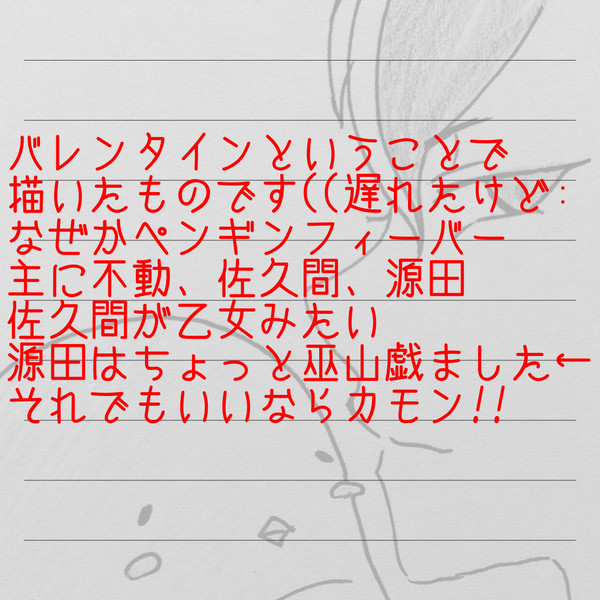 バレンタインということで
描いたものです((遅れたけど:
なぜかペンギンフィーバー
主に不動、佐久間、源田
佐久間が乙女みたい
源田はちょっと巫山戯ました←
それでもいいならカモン!!